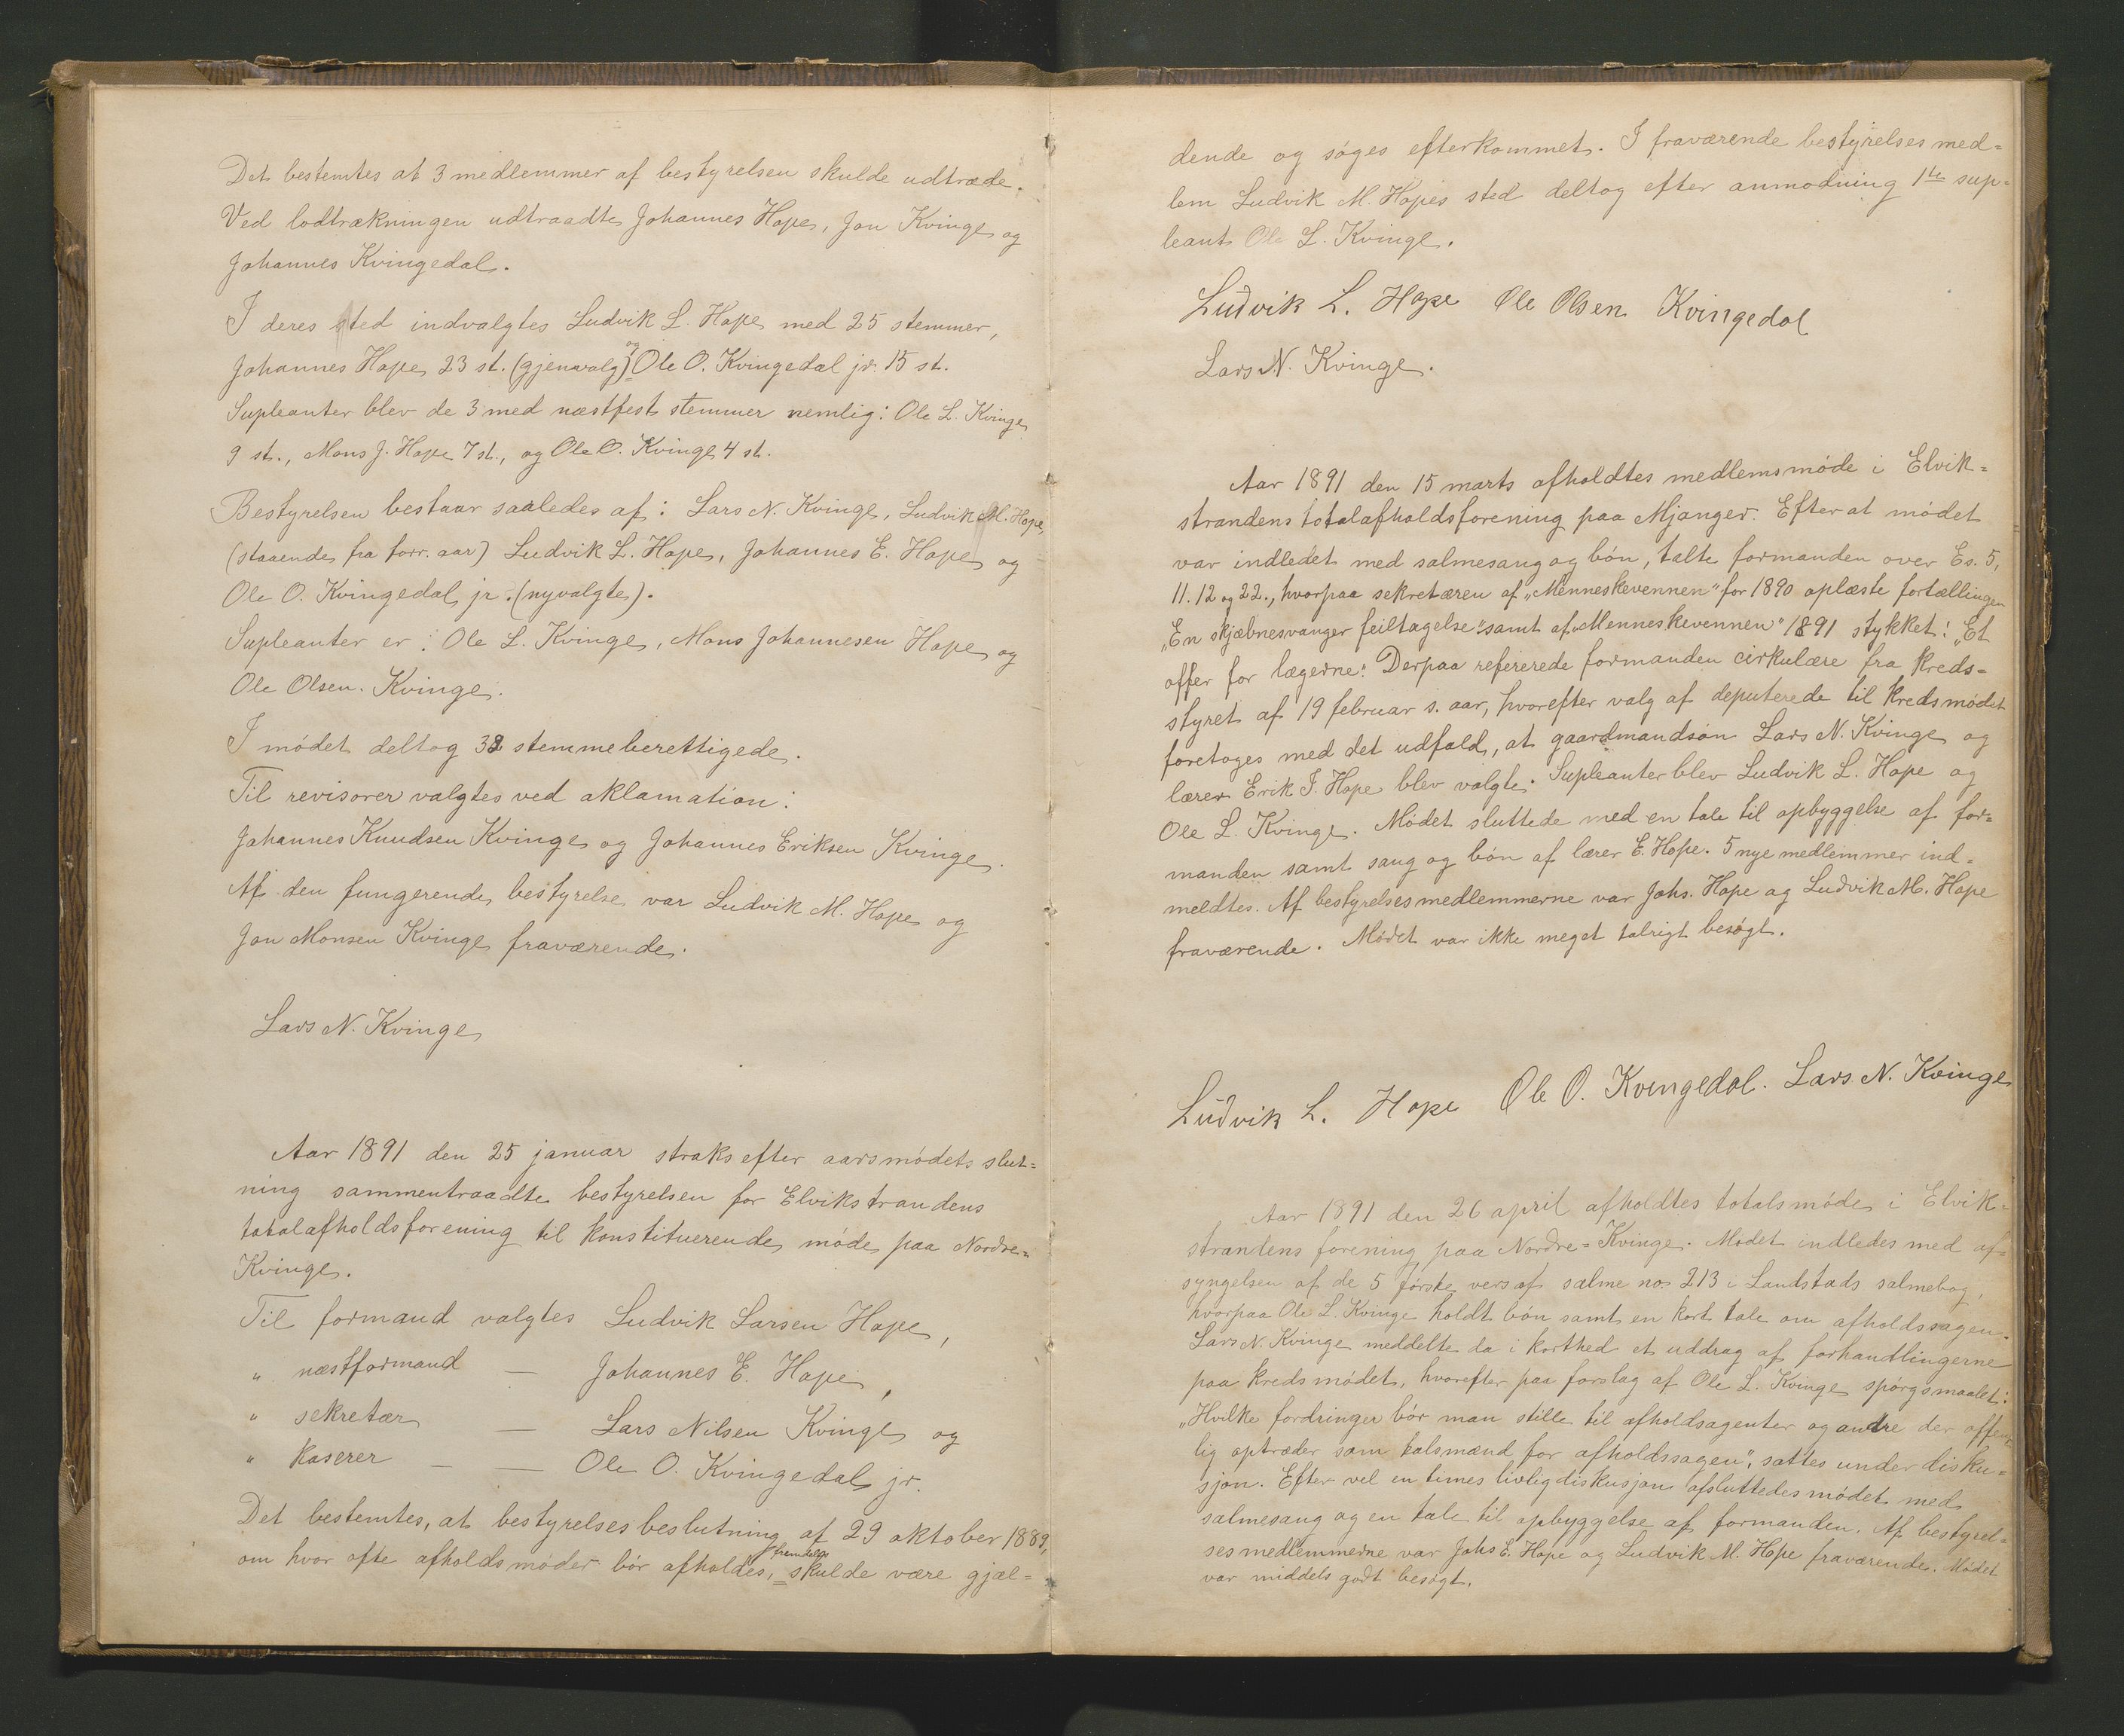 Det bestemtes at 3 medlemmer af bestyrelsen skulde udtræde.
Ved lodtrækningen udtraadte Johannes Hope, Jon Kvinge og
Johannes Kvingedal.
I deres sted indvalgtes Ludvik L. Hope med 25 stemmer,
Johannes Hope 23 st. (gjenvalg) og Ole O. Kvingedal jr. 15 st.
Supleanter blev de 3 med næstflest stemmer nemlig: Ole L. Kvinge
9 st., Mons J. Hope 7 st., og Ole O. Kvinge 4 st.
Bestyrelsen bestaar saaledes af: Lars N. Kvinge, Ludvik M. Hope,
(staaende fra forr. aar) Ludvik L. Hope, Johannes E. Hope og
Ole O. Kvingedal jr. (nyvalgte).
Supleanter er: Ole L. Kvinge, Mons Johannesen Hope og
Ole Olsen Kvinge.
I mödet deltog 32 stemmeberettigede.
Til revisorer valgtes ved aklamation:
Johannes Knudsen Kvinge og Johannes Eriksen Kvinge.
Af den fungerende bestyrelse var Ludvik M. Hope og
Jon Monsen Kvinge fraværende.
Lars N. Kvinge
Aar 1891 den 25 januar straks efter aarsmödets slut=
ning sammentraadte bestyrelsen for Elvikstrandens
totalafholdsforening til konstituerende möde paa Nordre=
Kvinge.
Til formand valgtes Ludvik Larsen Hope,
" næstformand — Johannes E. Hope,
" sekretær — Lars Nilsen Kvinge og
" kaserer — — Ole O. Kvingedal jr.
Det bestemtes, at bestyrelsesbeslutning af 29 oktober 1889,
om hvor ofte afholdsmöder bör afholdes, fremdeles skulde være gjæl=
dende og söges efterkommet. I fraværende bestyrelsesmed=
lem Ludvik M. Hopes sted deltog efter anmodning 1ste sup=
leant Ole L. Kvinge.
Ludvik L. Hope Ole Olsen Kvingedal
Lars N. Kvinge.
Aar 1891 den 15 marts afholdtes medlemsmöde i Elvik=
strandens totalafholdsforening paa Mjanger. Efter at mödet
var indledet med salmesang og bön, talte formanden over Es. 5,
11. 12 og 22., hvorpaa sekretæren af „Menneskevennen" for 1890 oplæste fortællingen
„En skjæbnesvanger feiltagelse" samt af „Menneskevennen" 1891 stykket: „Et
offer for lægerne." Derpaa refererede formanden cirkulære fra kreds=
styret af 19 februar s. aar, hvorefter valg af deputerede til kredsmödet
foretoges med det udfald, at gaardmandsön Lars N. Kvinge og
lærer Erik J. Hope blev valgte. Supleanter blev Ludvik L. Hope og
Ole L. Kvinge. Mödet sluttede med en tale til opbyggelse af for=
manden samt sang og bön af lærer E. Hope. 5 nye medlemmer ind=
meldtes. Af bestyrelsesmedlemmerne var Johs. Hope og Ludvik M. Hope
fraværende. Mödet var ikke meget talrigt besögt.
Ludvik L. Hope Ole O. Kvingedal. Lars N. Kvinge
Aar 1891 den 26 april afholdtes totalsmöde i Elvik=
strandens forening paa Nordre=Kvinge. Mödet indledes med af=
syngelsen af de 5 förste vers af salme no. 213 i Landstads salmebog,
hvorpaa Ole L. Kvinge holdt bön samt en kort tale om afholdssagen.
Lars N. Kvinge meddelte da i korthed et uddrag af forhandlingerne
paa kredsmödet, hvorefter paa forslag af Ole L. Kvinge spörgsmaalet:
„Hvilke fordringer bör man stille til afholdsagenter og andre der offent=
lig optræder som talsmænd for afholdssagen", sattes under disku=
sjon. Efter vel en times livlig diskusjon afsluttedes mödet med
salmesang og en tale til opbyggelse af formanden. Af bestyrel=
sesmedlemmerne var Johs E. Hope og Ludvik M. Hope fraværende. Mödet
var middels godt besögt.